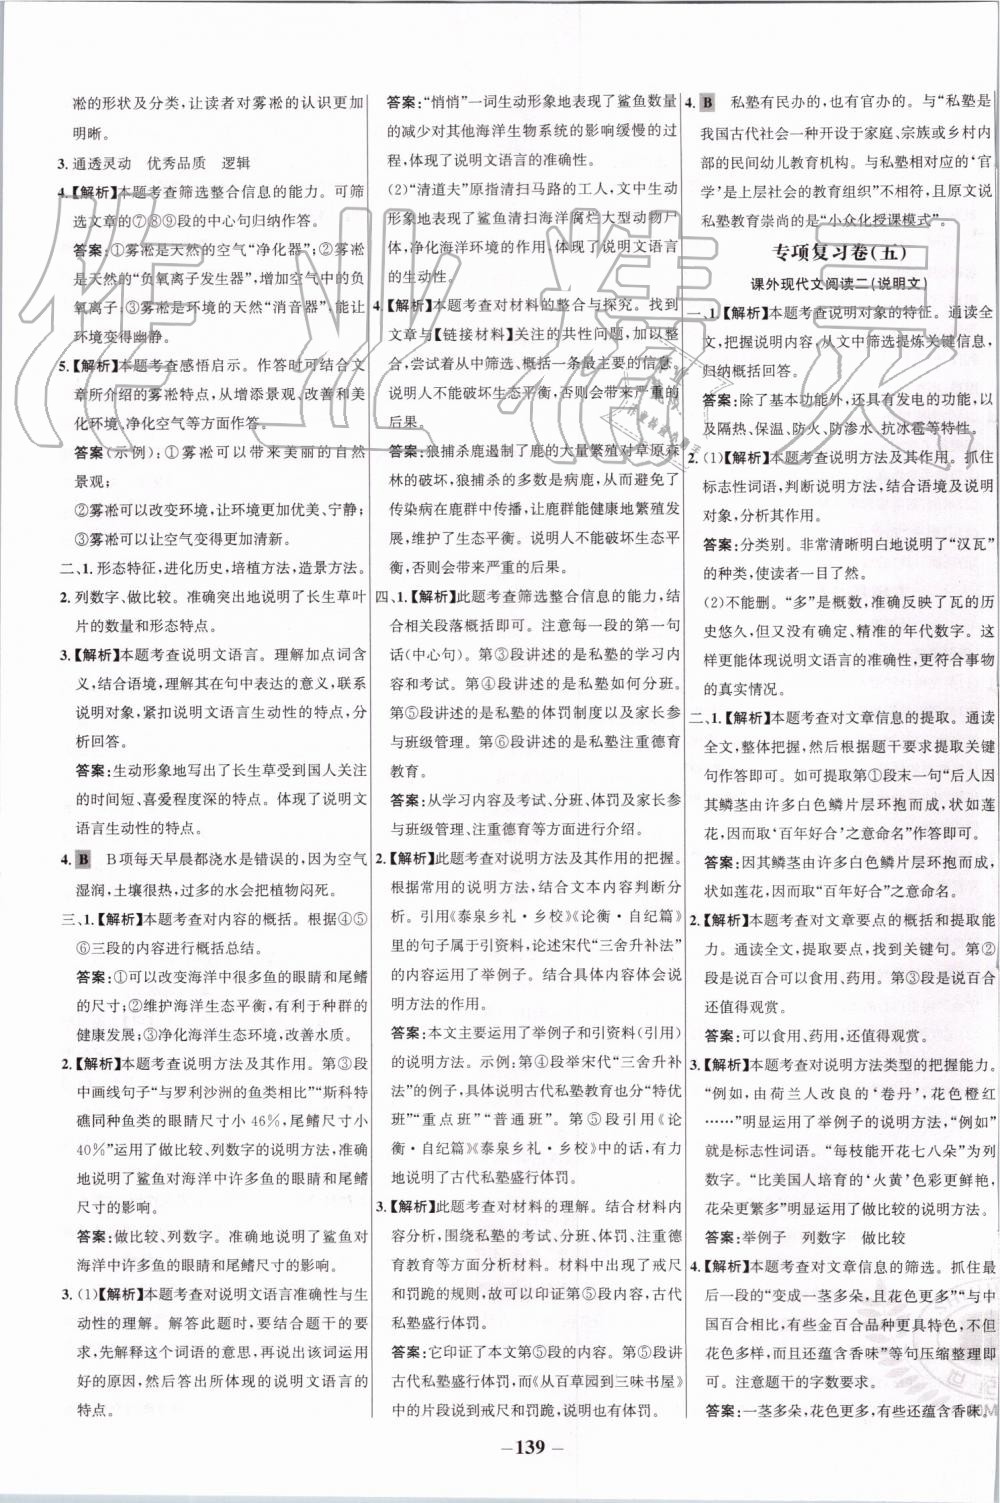 凇的形状及分类,让读者对雾凇的认识更加
明晰。
3. 通透灵动　优秀品质　逻辑
4.【解析】本题考查筛选整合信息的能力。可筛
选文章的⑦⑧⑨段的中心句归纳作答。
答案:①雾凇是天然的空气“净化器”;②雾凇
是天然的“负氧离子发生器”,增加空气中的负
氧离子;③雾凇是环境的天然“消音器”,能让
环境变得幽静。
5.【解析】本题考查感悟启示。作答时可结合文
章所介绍的雾凇特点,从增添景观、改善和美
化环境、净化空气等方面作答。
答案(示例):①雾凇可以带来美丽的自然
景观;
②雾凇可以改变环境,让环境更加优美、宁静;
③雾凇可以让空气变得更加清新。
二、1. 形态特征,进化历史,培植方法,造景方法。
2. 列数字、做比较。准确突出地说明了长生草叶
片的数量和形态特点。
3.【解析】本题考查说明文语言。理解加点词含
义,结合语境,理解其在句中表达的意义,联系
说明对象,紧扣说明文语言生动性的特点,分
析回答。
答案:生动形象地写出了长生草受到国人关注
的时间短、喜爱程度深的特点。体现了说明文
语言生动性的特点。
4. B　B项每天早晨都浇水是错误的,因为空气
湿润,土壤很热,过多的水会把植物闷死。
三、1.【解析】本题考查对内容的概括。根据④⑤
⑥三段的内容进行概括总结。
答案:①可以改变海洋中很多鱼的眼睛和尾鳍
的尺寸;②维护海洋生态平衡,有利于种群的
健康发展;③净化海洋生态环境,改善水质。
2.【解析】本题考查说明方法及其作用。第③段
中画线句子“与罗利沙洲的鱼类相比”“斯科特
礁同种鱼类的眼睛尺寸小46%,尾鳍尺寸小
40%”运用了做比较、列数字的说明方法,准确
地说明了鲨鱼对海洋中许多鱼的眼睛和尾鳍
尺寸的影响。
答案:做比较、列数字。准确地说明了鲨鱼对
海洋中许多鱼的眼睛和尾鳍尺寸的影响。
3.(1)【解析】本题考查对说明文语言准确性与生
动性的理解。解答此题时,要结合题干的要求,
先解释这个词语的意思,再说出该词语运用
好的原因,然后答出所体现的说明文语言的
特点。
答案:“悄悄”一词生动形象地表现了鲨鱼数量
的减少对其他海洋生物系统的影响缓慢的过
程,体现了说明文语言的准确性。
(2)“清道夫”原指清扫马路的工人,文中生动
形象地表现了鲨鱼清扫海洋腐烂大型动物尸
体,净化海洋环境的作用,体现了说明文语言
的生动性。
4.【解析】本题考查对材料的整合与探究。找到
文章与【链接材料】关注的共性问题,加以整
合,尝试着从中筛选、概括一条最主要的信息,
说明人不能破坏生态平衡,否则会带来严重的
后果。
答案:狼捕杀鹿遏制了鹿的大量繁殖对草原森
林的破坏,狼捕杀的多数是病鹿,从而避免了
传染病在鹿群中传播,让鹿群能健康地繁殖发
展,维护了生态平衡。说明人不能破坏生态平
衡,否则会带来严重的后果。
四、1.【解析】此题考查筛选整合信息的能力,结
合相关段落概括即可。注意每一段的第一句
话(中心句)。第③段讲述的是私塾的学习内
容和考试。第④段讲述的是私塾如何分班。
第⑤段讲述的是私塾的体罚制度以及家长参
与班级管理。第⑥段讲述的是私塾注重德育
教育。
答案:从学习内容及考试、分班、体罚及家长参
与班级管理、注重德育等方面进行介绍。
2.【解析】此题考查说明方法及其作用的把握。
根据常用的说明方法,结合文本内容判断分
析。引用《泰泉乡礼·乡校》《论衡·自纪篇》
里的句子属于引资料,论述宋代“三舍升补法”
的内容运用了举例子。结合具体内容体会说
明方法的作用。
答案:本文主要运用了举例子和引资料(引用)
的说明方法。示例:第④段举宋代“三舍升补
法”的例子,具体说明古代私塾教育也有“特优
班”“重点班”“普通班”。第⑤段引用《论
衡·自纪篇》《泰泉乡礼·乡校》中的话,有力
地说明了古代私塾盛行体罚。
3.【解析】此题考查对材料的理解。结合材料内
容分析,围绕私塾的考试、分班、体罚、注重德
育教育等方面分析材料。材料中出现了戒尺
和罚跪的规则,故可以印证第⑤段内容,古代
私塾盛行体罚。
答案:它印证了本文第⑤段的内容。第⑤段讲
古代私塾盛行体罚,《从百草园到三味书屋》
中的片段说到戒尺和罚跪,说明二者是一致的。
4. B　私塾有民办的,也有官办的。与“私塾是
我国古代社会一种开设于家庭、宗族或乡村内
部的民间幼儿教育机构。与私塾相对应的‘官
学’是上层社会的教育组织”不相符,且原文说
私塾教育崇尚的是“小众化授课模式”。
专项复习卷(五)
课外现代文阅读二(说明文)
一、1.【解析】本题考查说明对象的特征。通读全
文,把握说明内容,从文中筛选提炼关键信息,
归纳概括回答。
答案:除了基本功能外,还具有发电的功能,以
及隔热、保温、防火、防渗水、抗冰雹等特性。
2.(1)【解析】本题考查说明方法及其作用。抓住
标志性词语,判断说明方法,结合语境及说明
对象,分析其作用。
答案:分类别。非常清晰明白地说明了“汉瓦”
的种类,使读者一目了然。
(2)不能删。“多”是概数,准确说明了瓦的历
史悠久,但又没有确定、精准的年代数字。这
样更能体现说明文语言的准确性,更符合事物
的真实情况。
二、1.【解析】本题考查对文章信息的提取。通读
全文,整体把握,然后根据题干要求提取关键
句作答即可。如可筛选第①段末一句“后人因
其鳞茎由许多白色鳞片层环抱而成,状如莲
花,因而取‘百年好合’之意命名”作答即可。
答案:因其鳞茎由许多白色鳞片层环抱而成,
状如莲花,因而取“百年好合”之意命名。
2.【解析】本题考查对文章要点的概括和提取能
力。通读全文,提取要点,找到关键句。第②
段是说百合可以食用、药用。第③段是说百合
还值得观赏。
答案:可以食用、药用,还值得观赏。
3.【解析】本题考查对说明方法类型的把握能力。
“例如,由荷兰人改良的‘卷丹’,花色橙红
……”明显运用了举例子的说明方法,“例如”
就是标志性词语。“每枝能开花七八朵”为列
数字。“比美国人培育的‘火黄’色彩更鲜艳,
花朵更繁多”明显运用了做比较的说明方法。
答案:举例子　列数字　做比较
4.【解析】本题考查对文章信息的筛选。抓住最
后一段的“变成一茎多朵,且花色更多”“与中
国百合相比,有些金百合品种更具特色,不但
花色更多,而且还蕴含香味”等句压缩整理即
可。注意题干的字数要求。
答案:一茎多朵,花色更多,有些还蕴含香味。
－139－
作业精灵